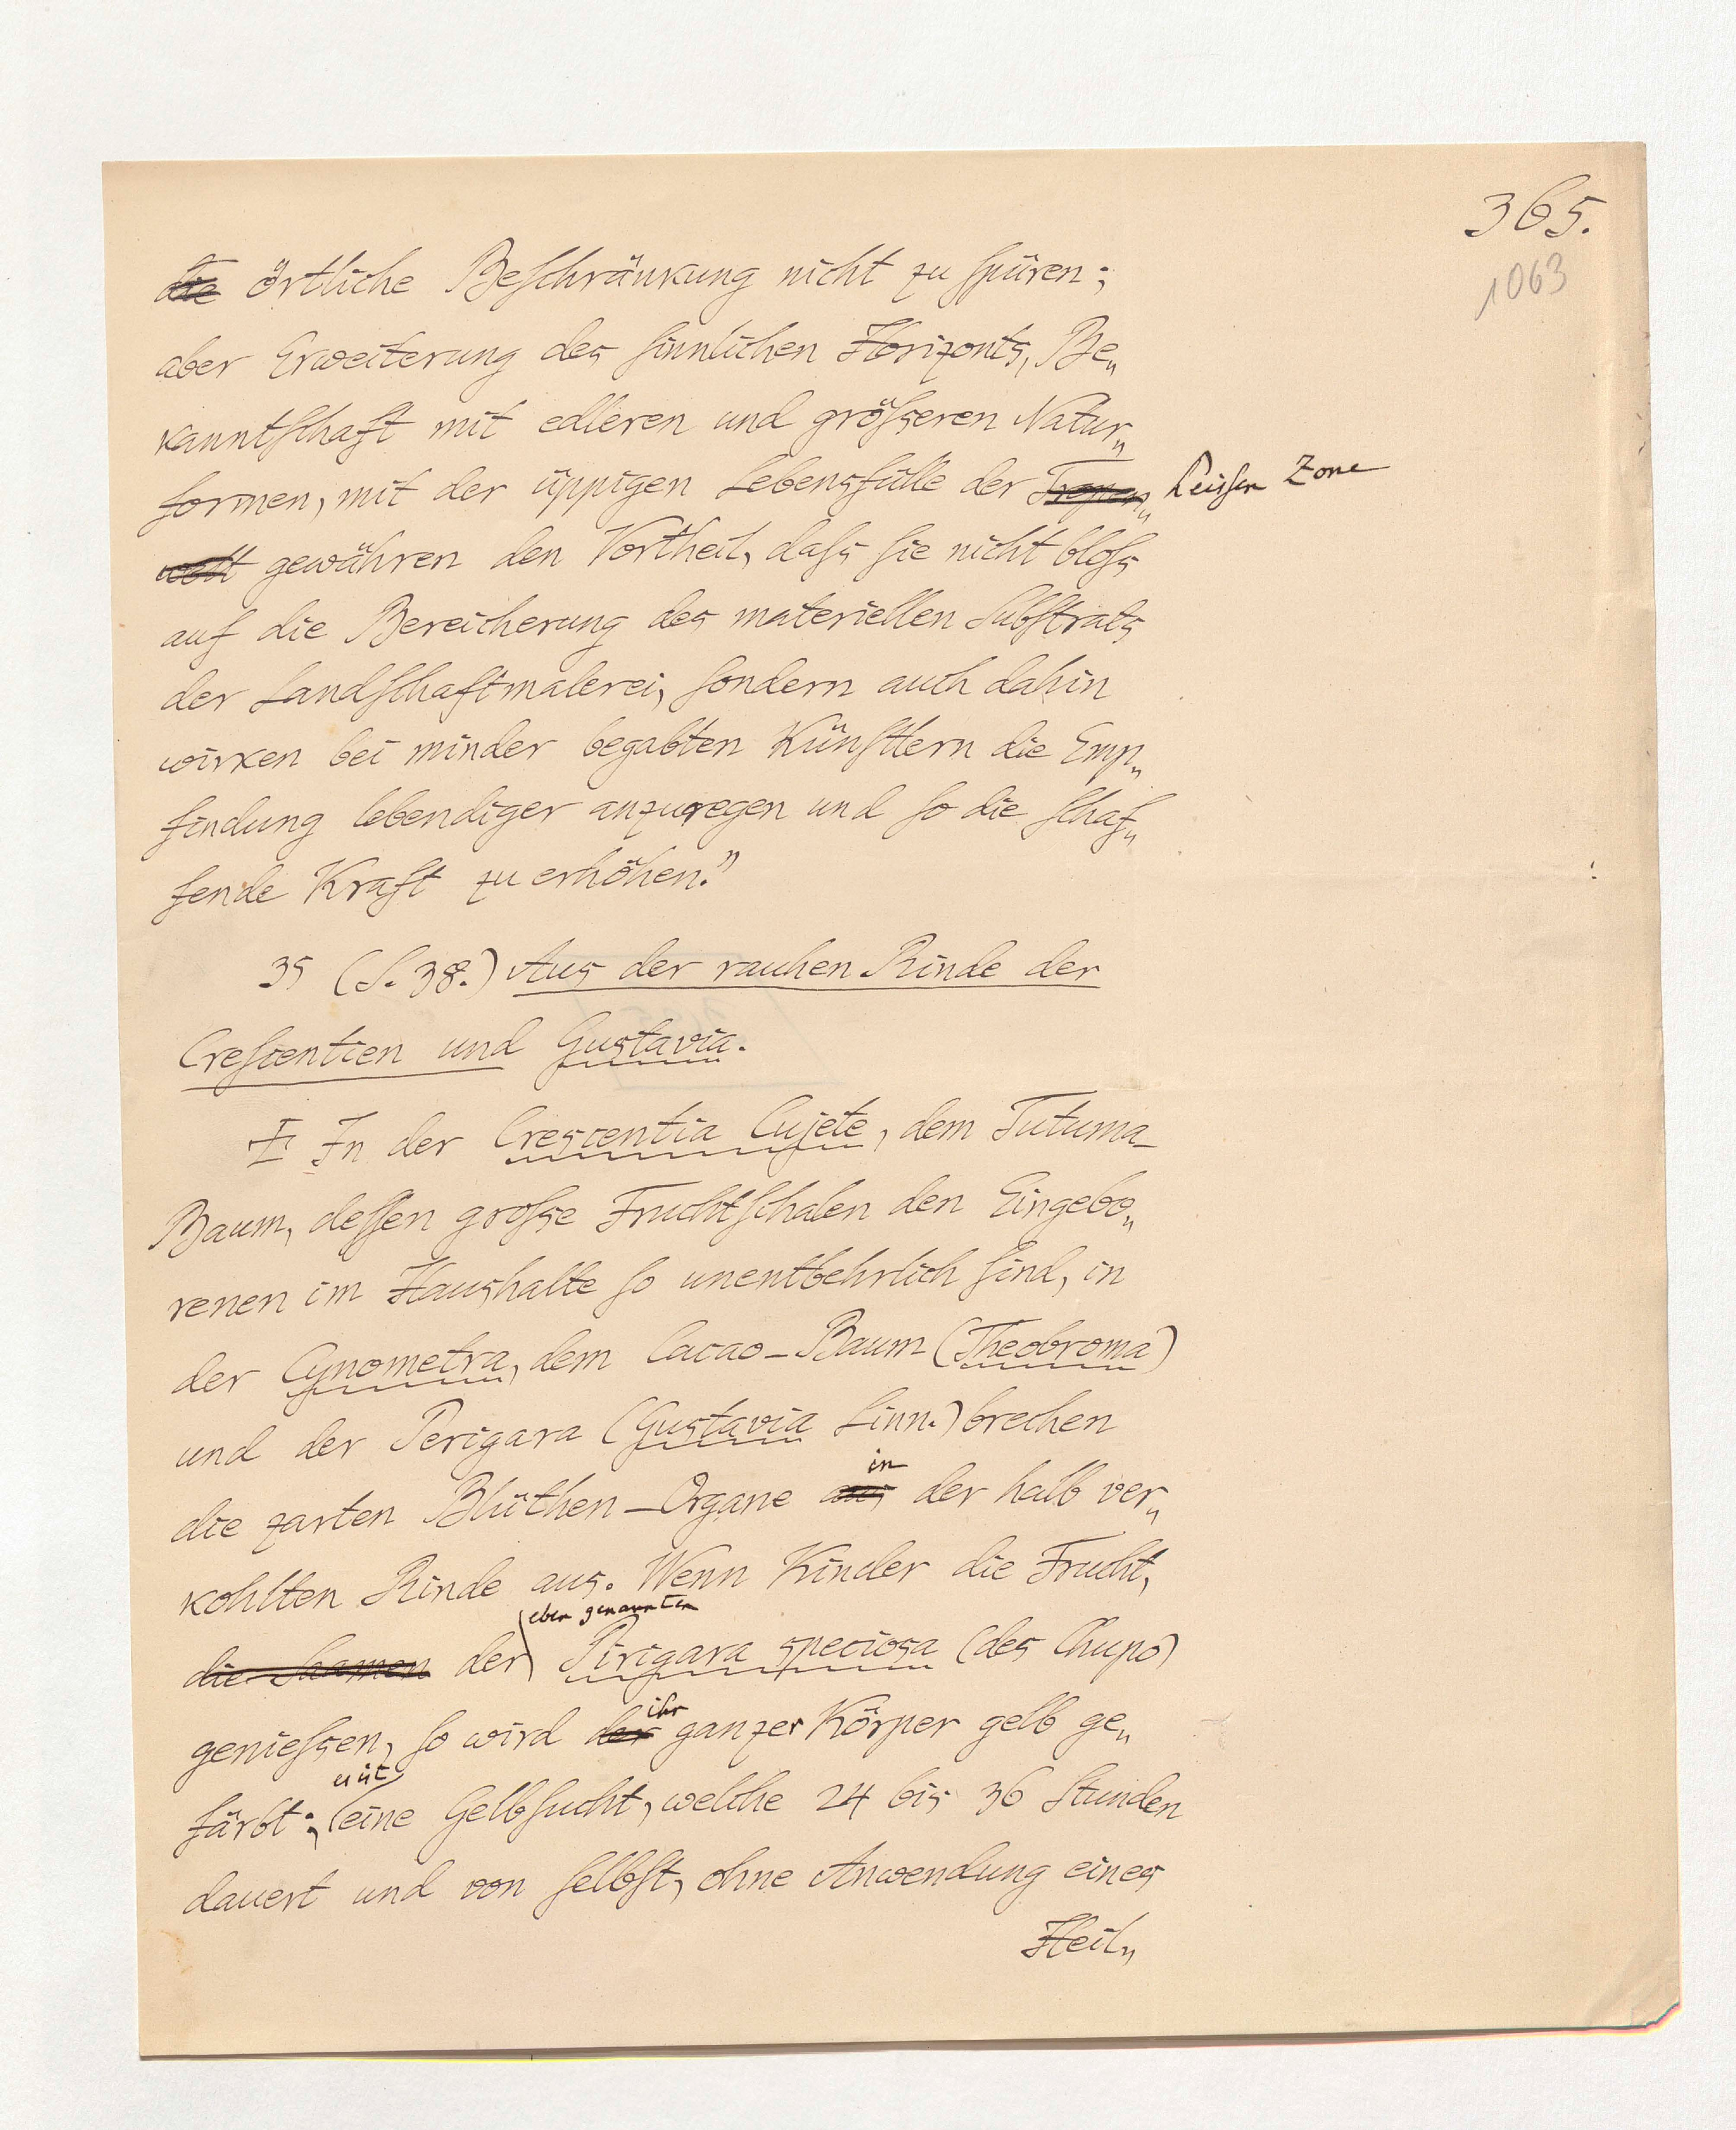 365.
1063
die örtliche Beschränkung nicht zu spüren;
aber Erweiterung des sinnlichen Horizonts, Be„
kanntschaft mit edleren und größeren Natur„
formen, mit der üppigen Lebensfülle der Tropen„ heißen Zone
welt gewähren den Vortheil, daß sie nicht bloß
auf die Bereicherung des materiellen Substrats
der Landschaftmalerei, sondern auch dahin
wirken bei minder begabten Künstlern die Emp„
findung lebendiger anzuregen und so die schaf„
fende Kraft zu erhöhen."
35 (S. 38.) Aus der rauhen Rinde der
Crescentien und Gustavia.
In der Crescentia Cujete, dem Tutuma-
Baum, dessen große Fruchtschalen den Eingebo„
renen im Haushalte so unentbehrlich sind, in
der Cynometra, dem Cacao-Baum (Theobroma)
und der Perigara (Gustavia Linn.) brechen
in
die zarten Blüthen-Organe aus der halb ver„
kohlten Rinde aus. Wenn Kinder die Frucht,
eben genannten
die Saamen der Pirigara speciosa (des Chupo)
ihr
genießen, so wird der ganzer Körper gelb ge„
färbt; eine Gelbsucht, welche 24 bis 36 Stunden
dauert und von selbst, ohne Anwendung eines
Heil„